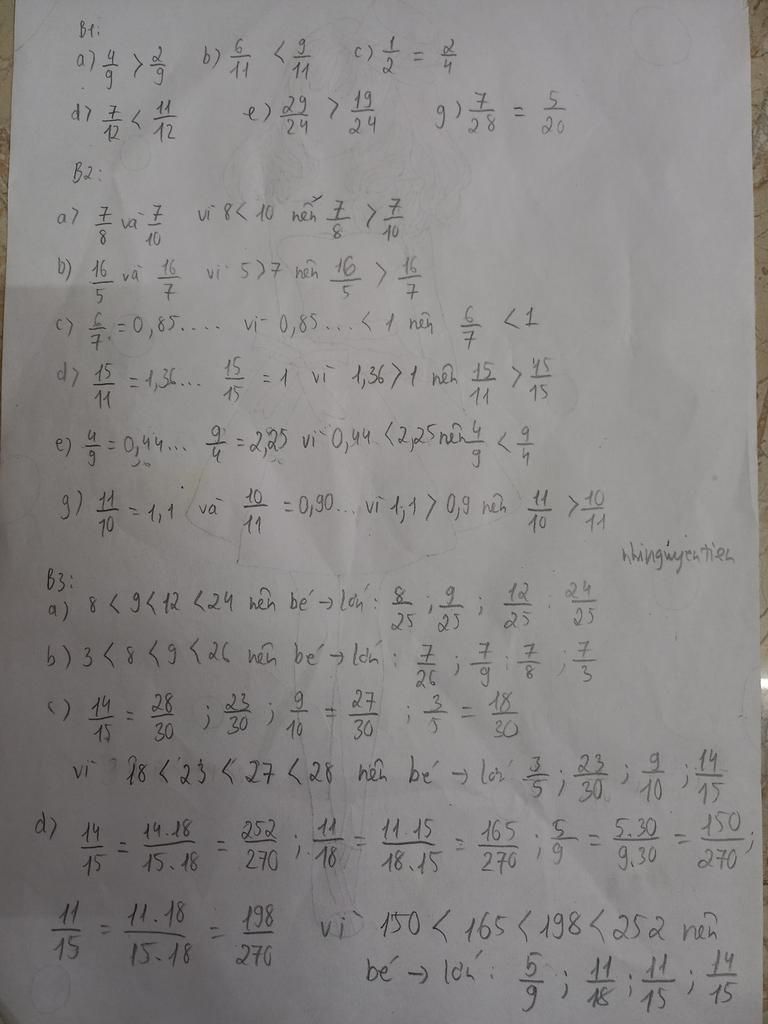 B1:
a) 4/9 > 2/9 b) 6/11 < 9/11 c) 1/2 = 2/4
d) 7/12 < 11/12 e) 29/24 > 19/24 g) 7/28 = 5/20
B2:
a) 7/8 và 7/10 vì 8 < 10 nên 7/8 > 7/10
b) 16/5 và 16/7 vì 5 > 7 nên 16/5 > 16/7
c) 6/7 = 0,85.... vì 0,85... < 1 nên 6/7 < 1
d) 15/11 = 1,36... 15/15 = 1 vì 1,36 > 1 nên 15/11 > 15/15
e) 4/9 = 0,44... 9/4 = 2,25 vì 0,44 < 2,25 nên 4/9 < 9/4
g) 11/10 = 1,1 và 10/11 = 0,90... vì 1,1 > 0,9 nên 11/10 > 10/11
nhinguyentien
B3:
a) 8 < 9 < 12 < 24 nên bé → lớn: 8/25 ; 9/25 ; 12/25 : 24/25
b) 3 < 8 < 9 < 26 nên bé → lớn: 7/26 ; 7/9 : 7/8 ; 7/3
c) 14/15 = 28/30 ; 23/30 ; 9/10 = 27/30 ; 3/5 = 18/30
vì 18 < 23 < 27 < 28 nên bé → lớn 3/5 ; 23/30 ; 9/10 ; 14/15
d) 14/15 = 14.18/15.18 = 252/270 ; 11/18 = 11.15/18.15 = 165/270 ; 5/9 = 5.30/9.30 = 150/270 ;
11/15 = 11.18/15.18 = 198/270 vì 150 < 165 < 198 < 252 nên
bé → lớn: 5/9 ; 11/18 ; 11/15 ; 14/15